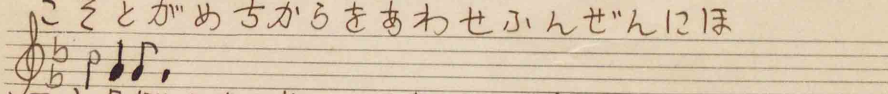 こそとがめちからをあわせふんぜんにほ